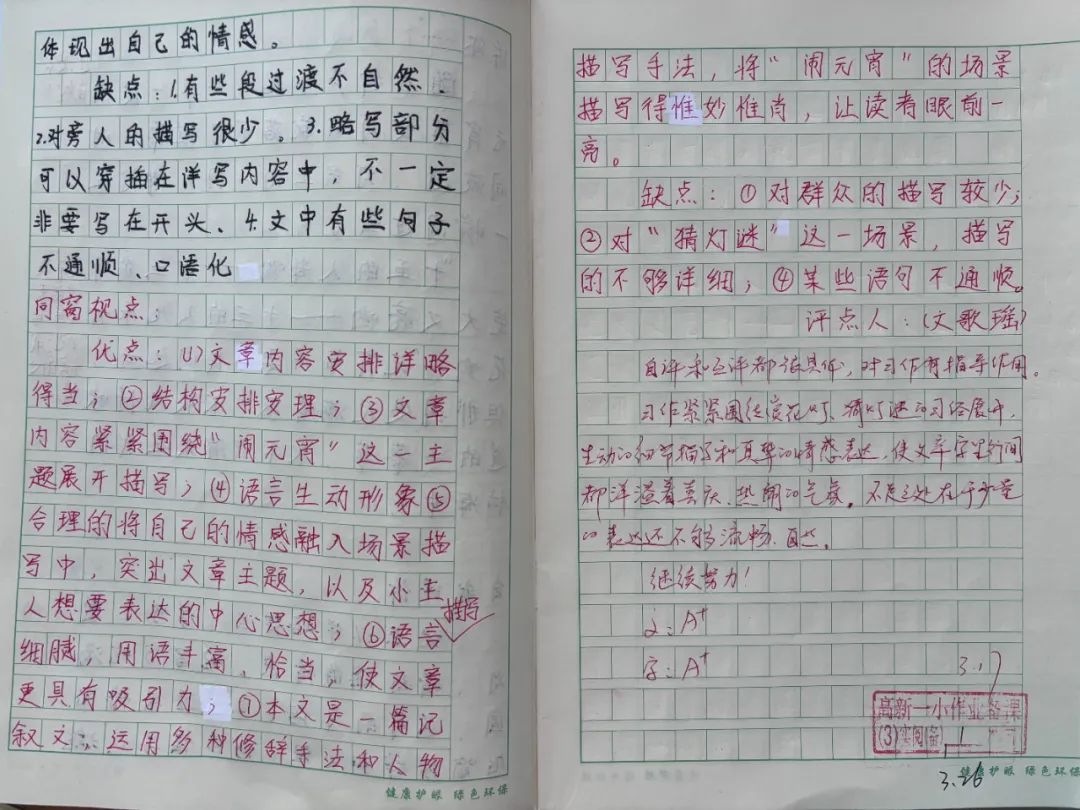 体现出自己的情感。
缺点：1.有些段过渡不自然、
2.对旁人的描写很少。3.略写部分
可以穿插在详写内容中，不一定
非要写在开头、4.文中有些句子
不通顺、口语化
同窗视点
优点：(1)文章内容安排详略
得当；②结构安排安理；③文章
内容紧紧围绕“闹元宵”这一主
题展开描写；④语言生动形象⑤
合理的将自己的情感融入场景描
写中，突出文章主题，以及小主
人想要表达的中心思想；⑥语言描写
细腻，用语丰富、恰当，使文章
更具有吸引力；⑦本文是一篇记
叙文，运用多种修辞手法和人物
健康护眼 绿色环保
描写手法，将“闹元宵”的场景
描写得惟妙惟肖，让读者眼前一
亮。
缺点：①对群众的描写较少；
②对“猜灯谜”这一场景，描写
的不够详细；④某些语句不通顺。
评点人：（文歌瑶）
自评和互评都该具体，对习作有指导作用。
习作紧紧围绕赏花灯、猜灯谜的习俗展开，
生动的细节描写和真挚的情感表达，使文章字里行间
都洋溢着喜庆、热闹的气氛。不足之处在于少量
的表达还不够流畅、自然。
继续努力！
文：A⁺
字：A⁺
3.17
高新一小作业备课
(3)实阅(备)1
3.26
健康护眼 绿色环保